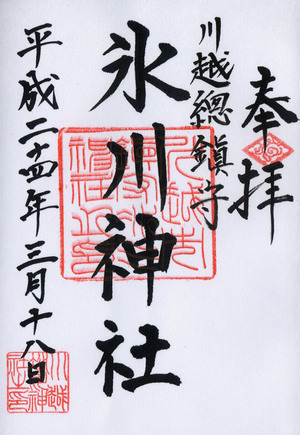 奉拝
川越總鎮守
氷川神社
平成二十四年三月十八日